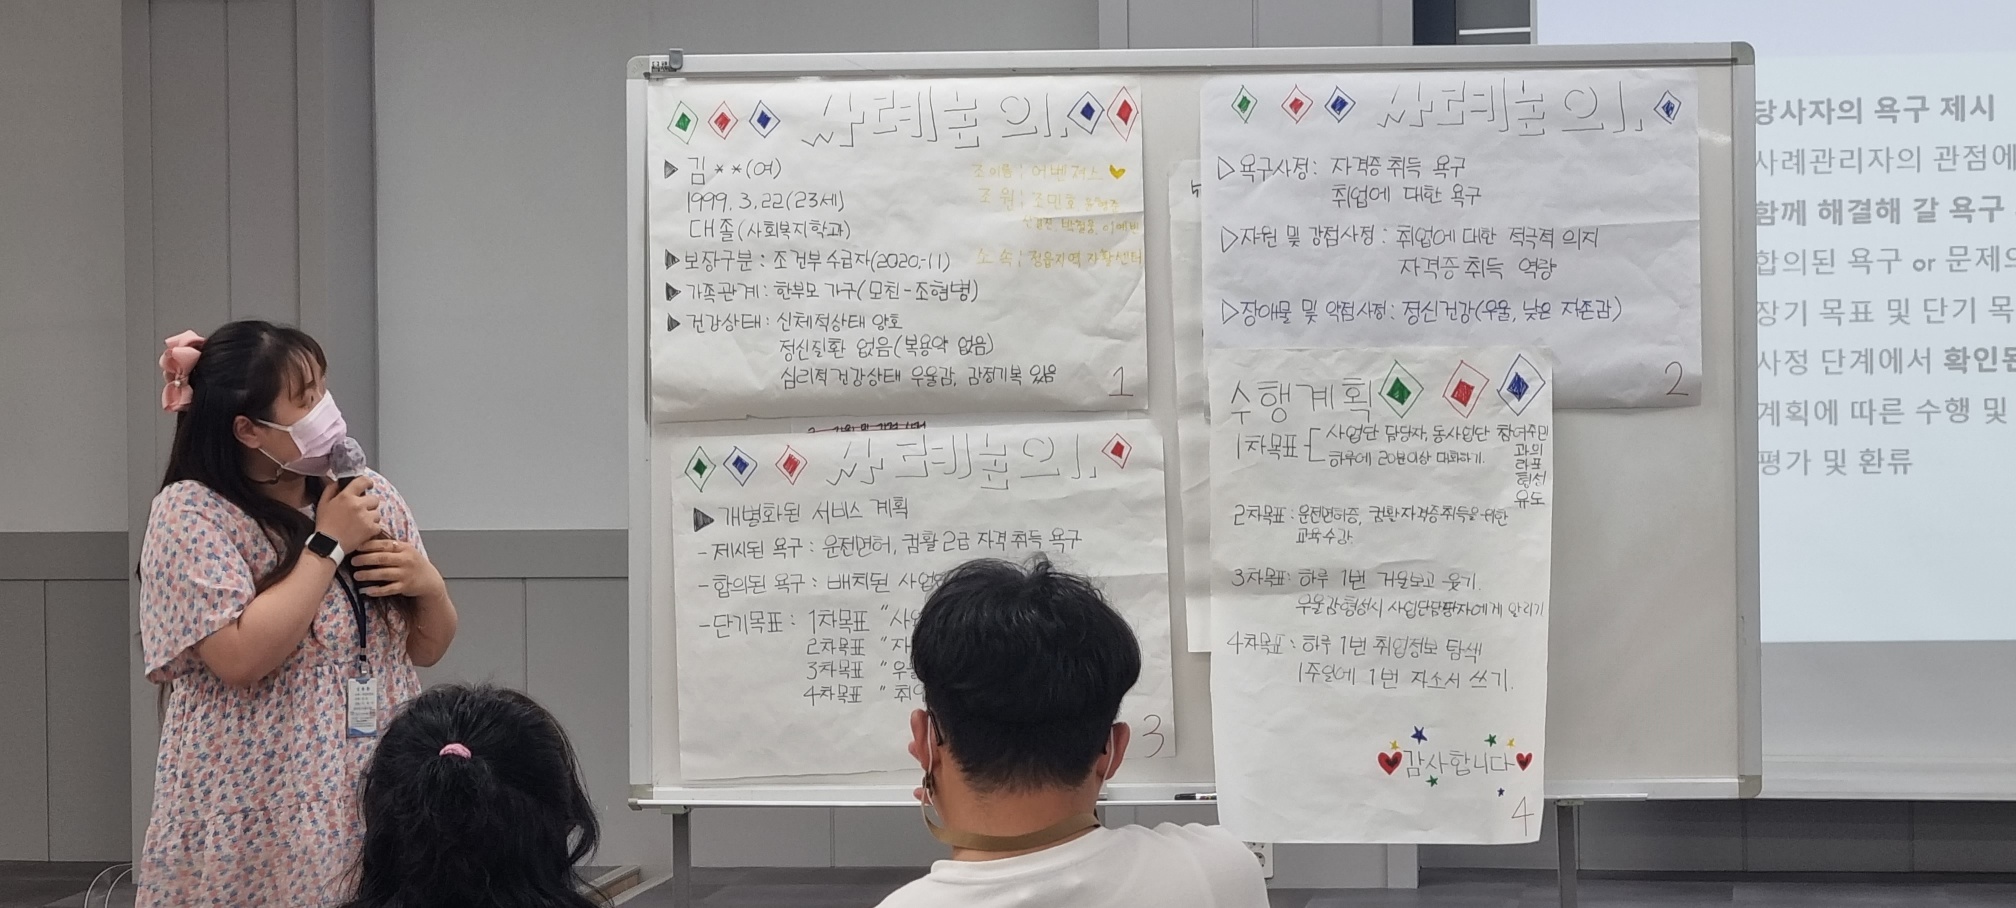 사례논의
김**(여)
1999.3.22(23세)
대졸(사회복지학과)
▶보장구분: 조건부수급자(2020.-11)
▶가족관계: 한부모 가구(모친-조현병)
▶건강상태: 신체적상태 양호
정신질환 없음(복용약 없음)
심리적건강상태 우울감, 감정기복 있음
조이름: 어벤져스
조원: 조민호
소속: 정읍지역자활센터
1
사례논의
▷욕구사정: 자격증 취득 욕구
취업에 대한 욕구
▷자원 및 강점사정: 취업에 대한 적극적 의지
자격증 취득 역량
▷장애물 및 약점사정: 정신건강(우울, 낮은 자존감)
2
사례논의
▶개별화된 서비스 계획
-제시된 욕구: 운전면허, 컴활 2급 자격취득 욕구
-합의된 욕구: 배치된 사업
-단기목표: 1차목표 "사업
2차목표 "자
3차목표 "우울
4차목표 "취업
3
수행계획
1차목표 [ 사업단 담당자, 동사업단 참여주민
하루에 20분이상 대화하기.
과의
라포
형성
유도
2차목표: 운전면허증, 컴활자격증취득을 위한
교육수강.
3차목표: 하루 1번 거울보고 웃기.
우울감형성시 사업단담당자에게 알리기
4차목표: 하루 1번 취업정보 탐색
1주일에 1번 자소서 쓰기.
감사합니다
4
당사자의 욕구 제시
사례관리자의 관점에
함께 해결해 갈 욕구
합의된 욕구 or 문제의
장기 목표 및 단기 목
사정 단계에서 확인된
계획에 따른 수행 및
평가 및 환류